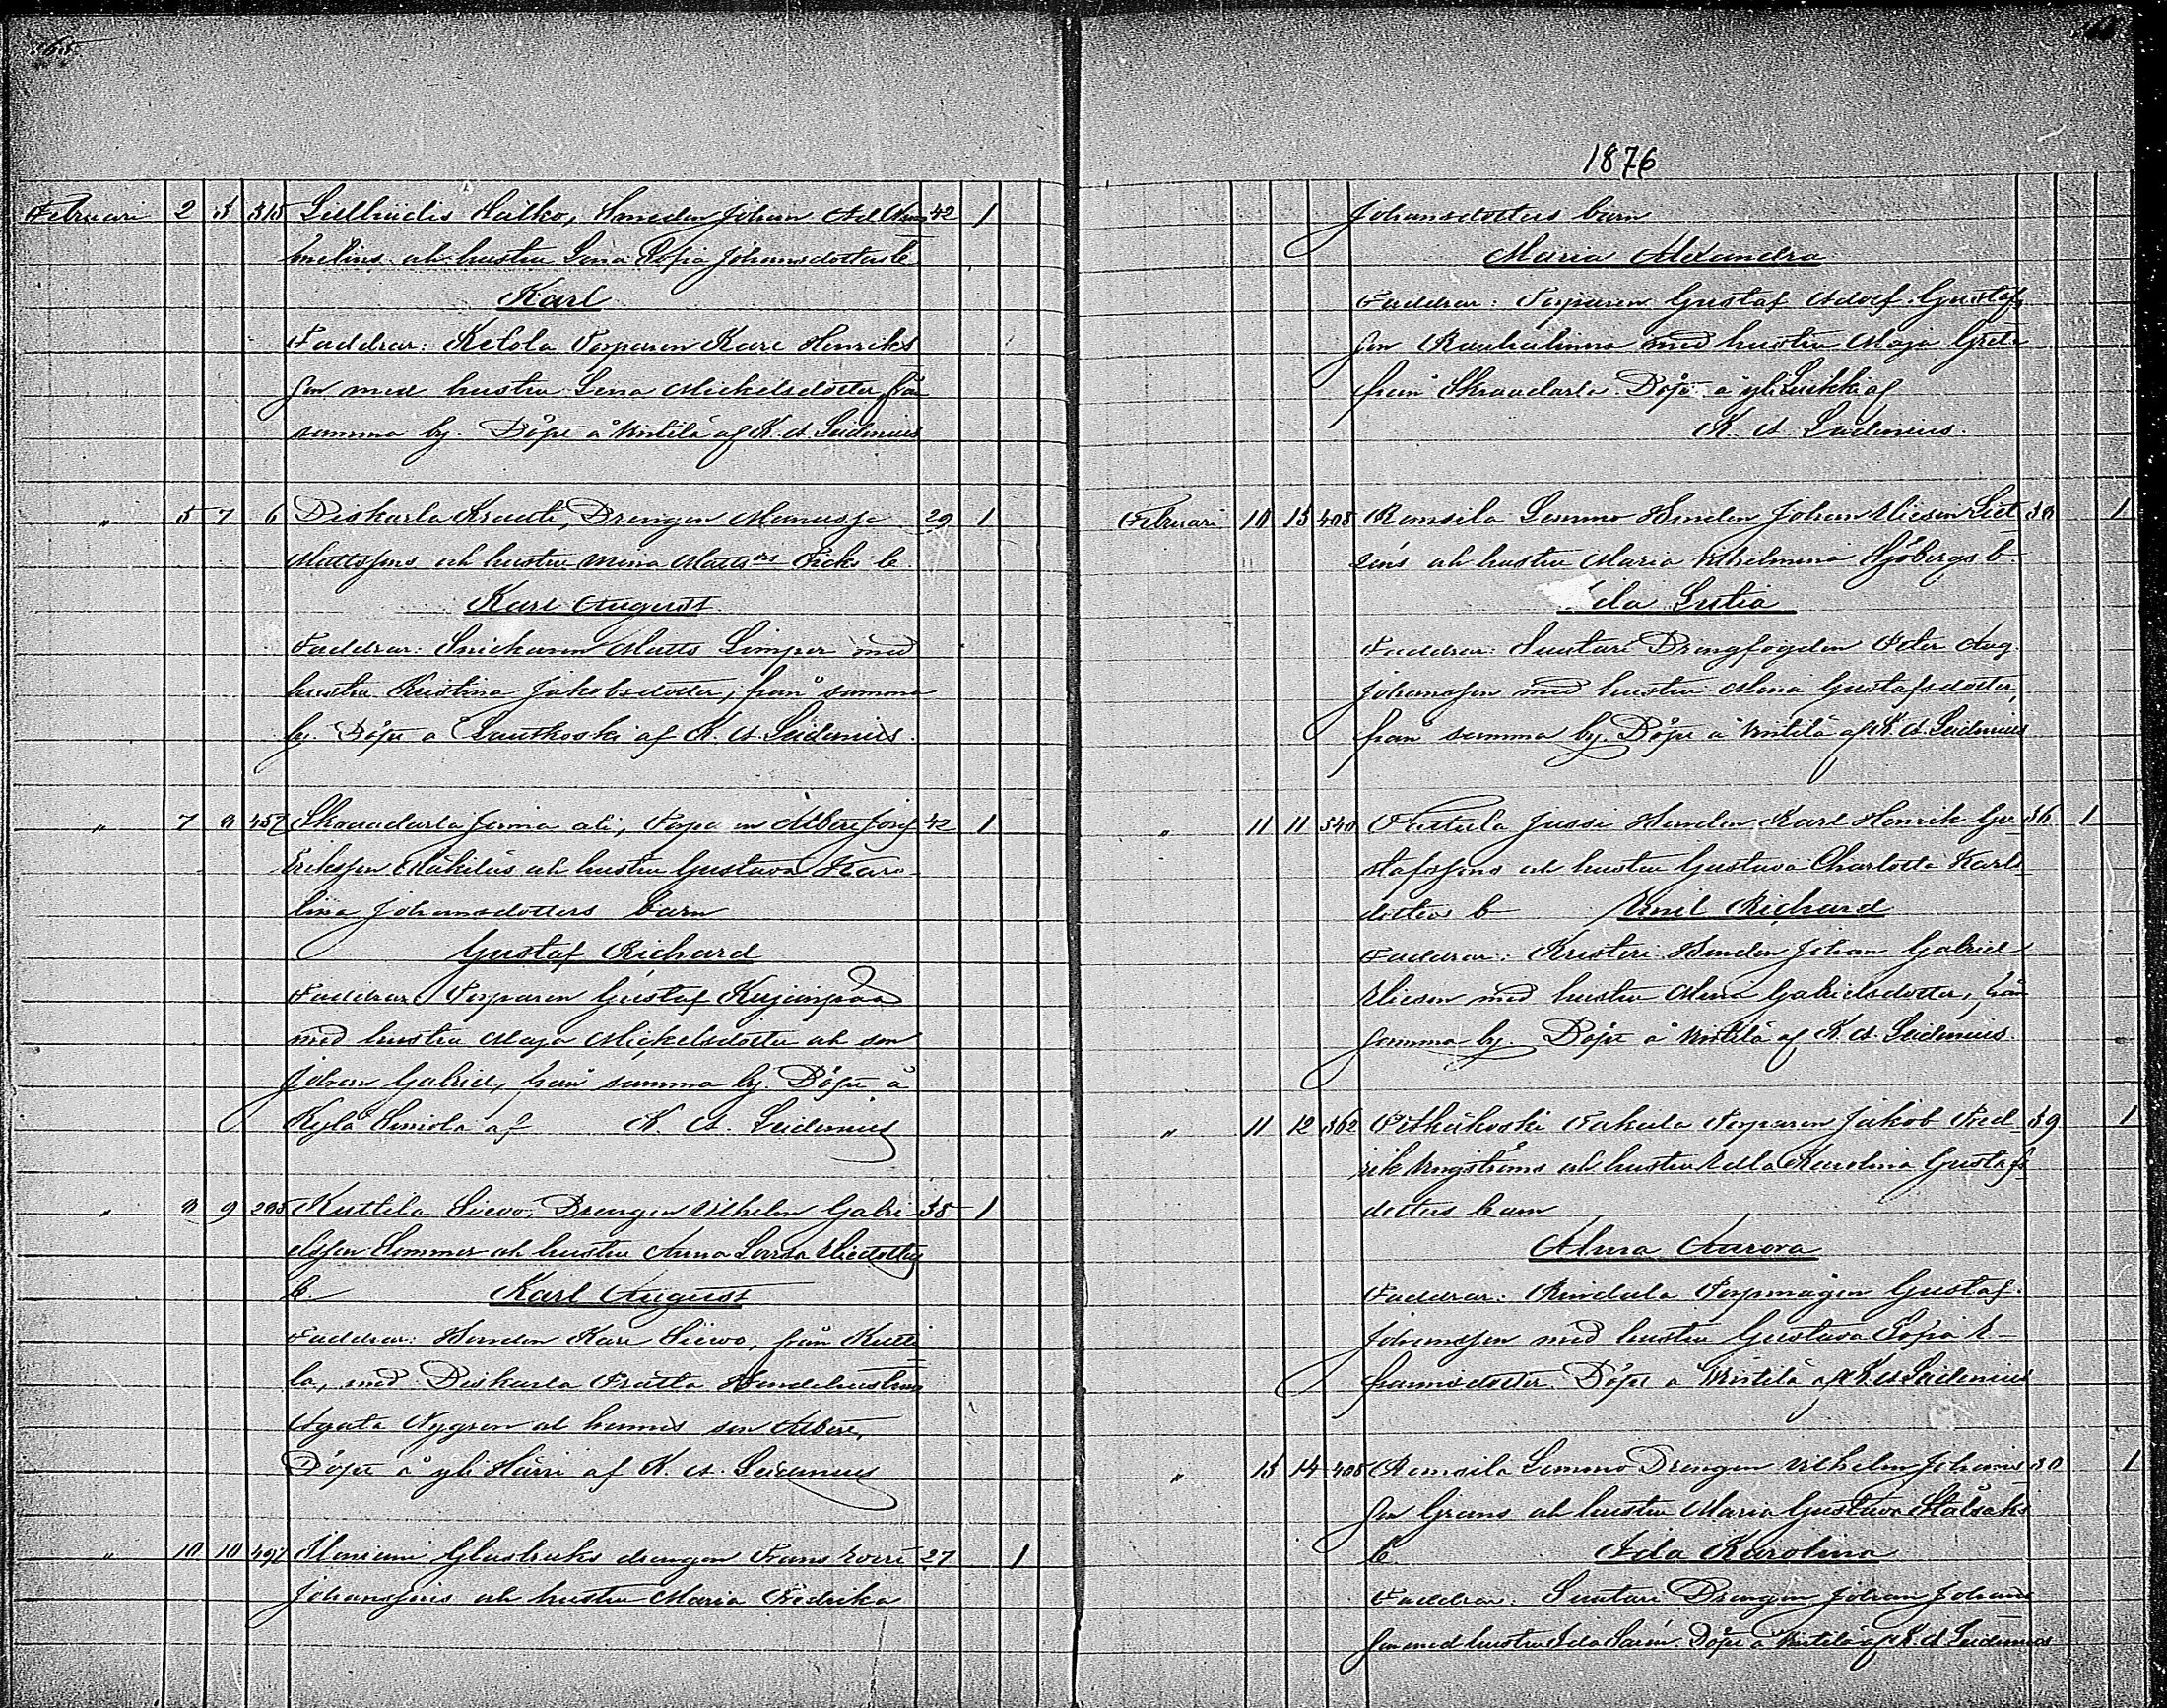 1876
Februari 2 3 315 Sallko, Smeden Johan 42 1
och hustru Lena Sofia Johansdotters b
Karl
Faddrar: Ketola Torparen Karl Henriks
son med hustru Lena Mickelsdotter, från
samma by. Döpt å Anttila af K. A. Leidenius
" 5 7 6 Diskarla Krouvi, Drengen 29 1
Mattssons och hustru Mina Matts drs b.
Karl August
Faddrar: Snickaren Matts Limper med
hustru Kristina Jakobsdotter, från samma
by. Döpt å Lautkoski af K. A. Leidenius.
" 7 8 457 Skraudarla ali, Torparen Albert Josef 42 1
Eriksson Mäkiläs och hustru Gustava Karo-
lina Johansdotters barn
Gustaf Richard
Faddrar Torparen Gustaf Kujanpää
med hustru Maja Mickelsdotter och son
Johan Gabriel, från samma by. Döpt å
Kylä Simola af K. A. Leidenius
" 8 9 205 Kuttila Sievo, Drengen Vilhelm Gabri- 38 1
elsson Sommer och hustru Anna Lovisa Eliedotters
b. Karl August
Faddrar: Karl Sievo, från Kutti
la, med Diskarla
Agata Nygren och hennes son Albert,
Döpt å yli Härri af K. A. Leidenius
" 10 10 497 Glasbruks drengen Frans Evert 27 1
Johanssons och hustru Maria Fredrika
Johansdotters barn
Maria Alexandra
Faddrar: Torparen Gustaf Adolf Gustafs
son Rauhalinna med hustru Maja Greta
från Skraudarla. Döpt å yli af
K. A. Leidenius.
Februari 10 13 408 Remsila Lemmo Johan Eliesson 30 1
och hustru Maria Vilhelmina Sjöbergs b.
Ida
Faddrar: Suutari Drengfogden Peter Aug.
Johansson med hustru Mina Gustafsdotter,
från samma by. Döpt å Anttila af K. A. Leidenius
" 11 11 540 Jussi Karl Henrik Gu- 36 1
stafssons och hustru Gustava Charlotta Karls
dotters b Emil Richard
Faddrar: Kristeri Johan Gabriel
Eliesson med hustru Mina Gabrielsdotter, från
samma by. Döpt å Anttila af K. A. Leidenius.
" 11 12 362 Pitkäkoski Torparen Jakob Fred- 39 1
rik Engströms och hustru Edla Karolina Gustafs
dotters barn
Alma Aurora
Faddrar: Rindala Torpmågen Gustaf
Johansson med hustru Gustava Sofia E-
fraimsdotter. Döpt å Anttila af K. A. Leidenius
" 13 14 408 Remsila Lemmo Drengen Vilhelm Johans 30 1
son Grans och hustru Maria Gustava
b Ida Karolina
Faddrar: Suutari Drengen Johan Johans
son med hustru Ida Döpt å Anttila af K. A. Leidenius